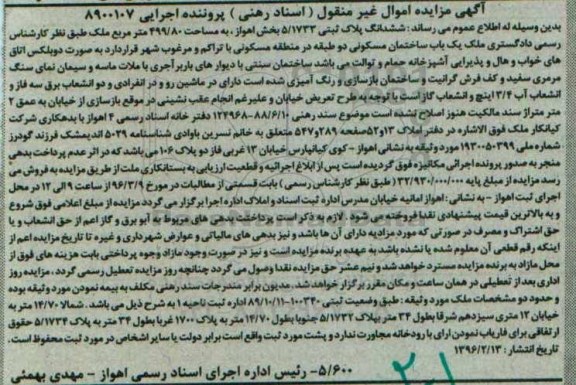 آگهی مزایده اموال غیر منقول ( اسناد رهنی ) پرونده اجرایی ۸۹۰۰۱۰۷
بدین وسیله به اطلاع عموم می رساند : ششدانگ پلاک ثبتی ۵/۱۷۳۳ بخش اهواز ، به مساحت ۴۹۹/۸۰ متر مربع ملک طبق نظر کارشناس
رسمی دادگستری ملک یک باب ساختمان مسکونی دو طبقه در منطقه مسکونی با تراکم و مرغوب شهر قرار دارد به صورت دوبلکس اتاق
های خواب و هال و پذیرایی آشپزخانه حمام و توالت می باشد ساختمان سنتی با دیوار های باربر آجری با ملات ماسه و سیمان نمای سنگ
مرمری سفید و کف فرش گرانیت و ساختمان بازسازی و رنگ آمیزی شده است دارای در ماشین رو و در انفرادی و دو انشعاب برق سه فاز و
انشعاب آب ۳/۴ اینچ و انشعاب گاز است با توجه به طرح تعریض خیابان و علیرغم انجام عقب نشینی در موقع بازسازی از خیابان به عمق ۲
متر متراژ سند مالکیت هنوز اصلاح نشده است موضوع سند رهنی ۸۸/۶/۱۰-۱۲۴۹۶۸ دفتر خانه اسناد رسمی ۴ اهواز با بدهکاری شرکت
کیانکار ملک فوق الاشاره در دفتر املاک ۱۳و۵۲صفحه ۲۸۹و۵۴۷ متعلق به خانم نسرین باوادی شناسنامه ۵۰۲۹ اندیمشک فرزند گودرز
شماره ملی ۱۹۳۰۰۵۰۳۹۹ مورد وثیقه به نشانی اهواز - کوی کیانپارس خیابان ۱۳ غربی فاز دو پلاک ۱۰۶ می باشد که در اثر عدم پرداخت بدهی
منجر به صدور پرونده اجرائی مکانیزه فوق گردیده است پس از ابلاغ اجرائیه و قطعیت ارزیابی به بستانکاری ملت از طریق مزایده به فروش می
رسد مزایده از مبلغ پایه ۳۲/۹۳۰/۰۰۰/۰۰۰ (طبق نظر کارشناس رسمی ) بابت قسمتی از مطالبات در مورخ ۹۶/۳/۹ از ساعت ۹ الی ۱۲ در محل
اجرای ثبت اهواز - به نشانی : اهواز امانیه خیابان مدرس اداره ثبت اسناد و املاک اداره اجرا برگزار می گردد مزایده از مبلغ اعلامی فوق شروع
و به بالاترین قیمت پیشنهادی نقدا فروخته می شود . لازم به ذکر است پرداخت بدهی های مربوط به آب و برق و گاز اعم از حق انشعاب و یا
حق اشتراک و مصرف در صورتی که مورد مزایده دارای آن ها باشد و نیز بدهی های مالیاتی و عوارض شهرداری و غیره تا تاریخ مزایده اعم از
اینکه رقم قطعی آن معلوم شده یا نشده باشد به عهده برنده مزایده است و نیز در صورت وجود مازاد وجوه پرداختی بابت هزینه های فوق از
محل مازاد به برنده مزایده مسترد خواهد شد و نیم عشر حق مزایده نقدا وصول می گردد چنانچه روز مزایده تعطیل رسمی گردد ، مزایده روز
اداری بعد از تعطیلی در همان ساعت و مکان مقرر برگزار خواهد شد. مدیون برابر مندرجات سند رهنی مکلف به بیمه نمودن مورد وثیقه بوده
و حدود دو مشخصات ملک مورد وثیقه : طبق وضعیت ثبتی ۱۰۰۳۴۰-۸۹/۱۰/۱۱ اداره ثبت ناحیه ۱ به شرح ذیل می باشد . شمالا ۱۴/۷۰ متر به
خیابان ۱۲ متری سیزدهم شرقا بطول ۳۴ متر بپلاک ۵/۱۷۳۲ جنوبا بطول ۱۴/۷۰ متر به پلاک ۱۷۰۰ غربا بطول ۳۴ متر به پلاک ۵/۱۷۳۴ حقوق
ارتفاقی برای فاریاب نمودن ارای با رودخانه مجاورت ندارد و پشت مورد ثبت واقع است برابر دولت یا سایر اشخاص در مورد ثبت محفوظ است .
تاریخ انتشار : ۱۳۹۶/۲/۱۳
۵/۶۰۰- رئیس اداره اجرای اسناد رسمی اهواز - مهدی بهمئی